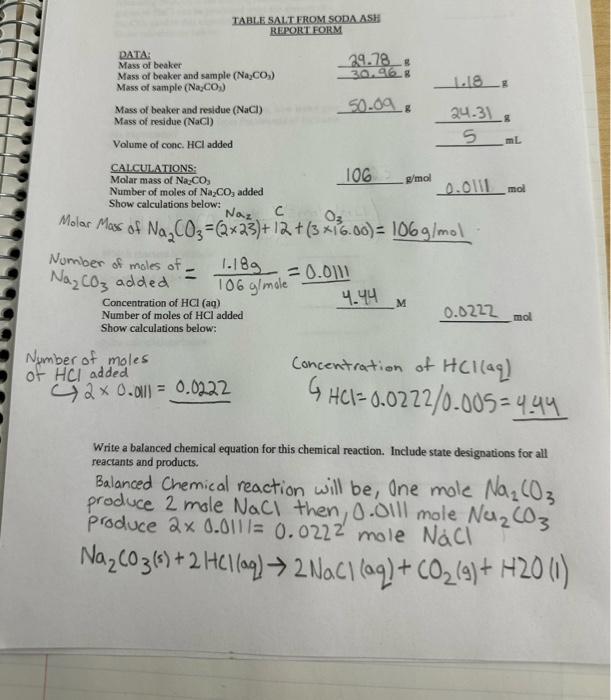 TABLE SALT FROM SODA ASH
REPORT FORM
DATA:
Mass of beaker 29.78 g
Mass of beaker and sample (Na₂CO₃) 30.96 g
Mass of sample (Na₂CO₃) 1.18 g
Mass of beaker and residue (NaCl) 50.09 g
Mass of residue (NaCl) 24.31 g
Volume of conc. HCl added 5 mL
CALCULATIONS:
Molar mass of Na₂CO₃ 106 g/mol
Number of moles of Na₂CO₃ added 0.0111 mol
Show calculations below:
Na₂ C O₃
Molar Mass of Na₂CO₃ = (2×23) + 12 + (3×16.00) = 106 g/mol
Number of moles of Na₂CO₃ added = 1.18g / 106 g/mole = 0.0111
Concentration of HCl (aq) 4.44 M
Number of moles of HCl added 0.0222 mol
Show calculations below:
Number of moles
of HCl added
↳ 2 × 0.0111 = 0.0222
Concentration of HCl(aq)
↳ HCl = 0.0222/0.005 = 4.44
Write a balanced chemical equation for this chemical reaction. Include state designations for all
reactants and products.
Balanced Chemical reaction will be, One mole Na₂CO₃
produce 2 mole NaCl then, 0.0111 mole Na₂CO₃
Produce 2x 0.0111= 0.0222 mole NaCl
Na₂CO₃(s) + 2HCl(aq) → 2NaCl(aq) + CO₂(g) + H2O(l)